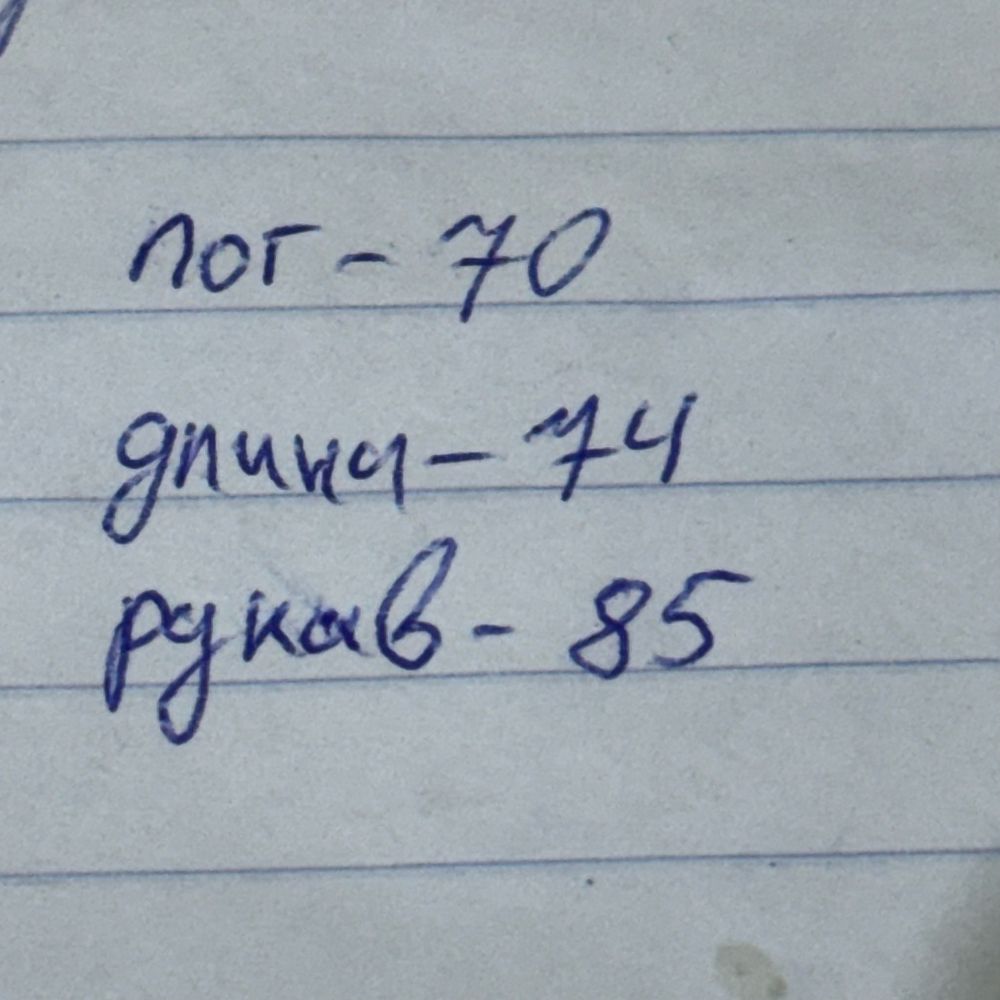 пог - 70
длина - 74
рукав - 85